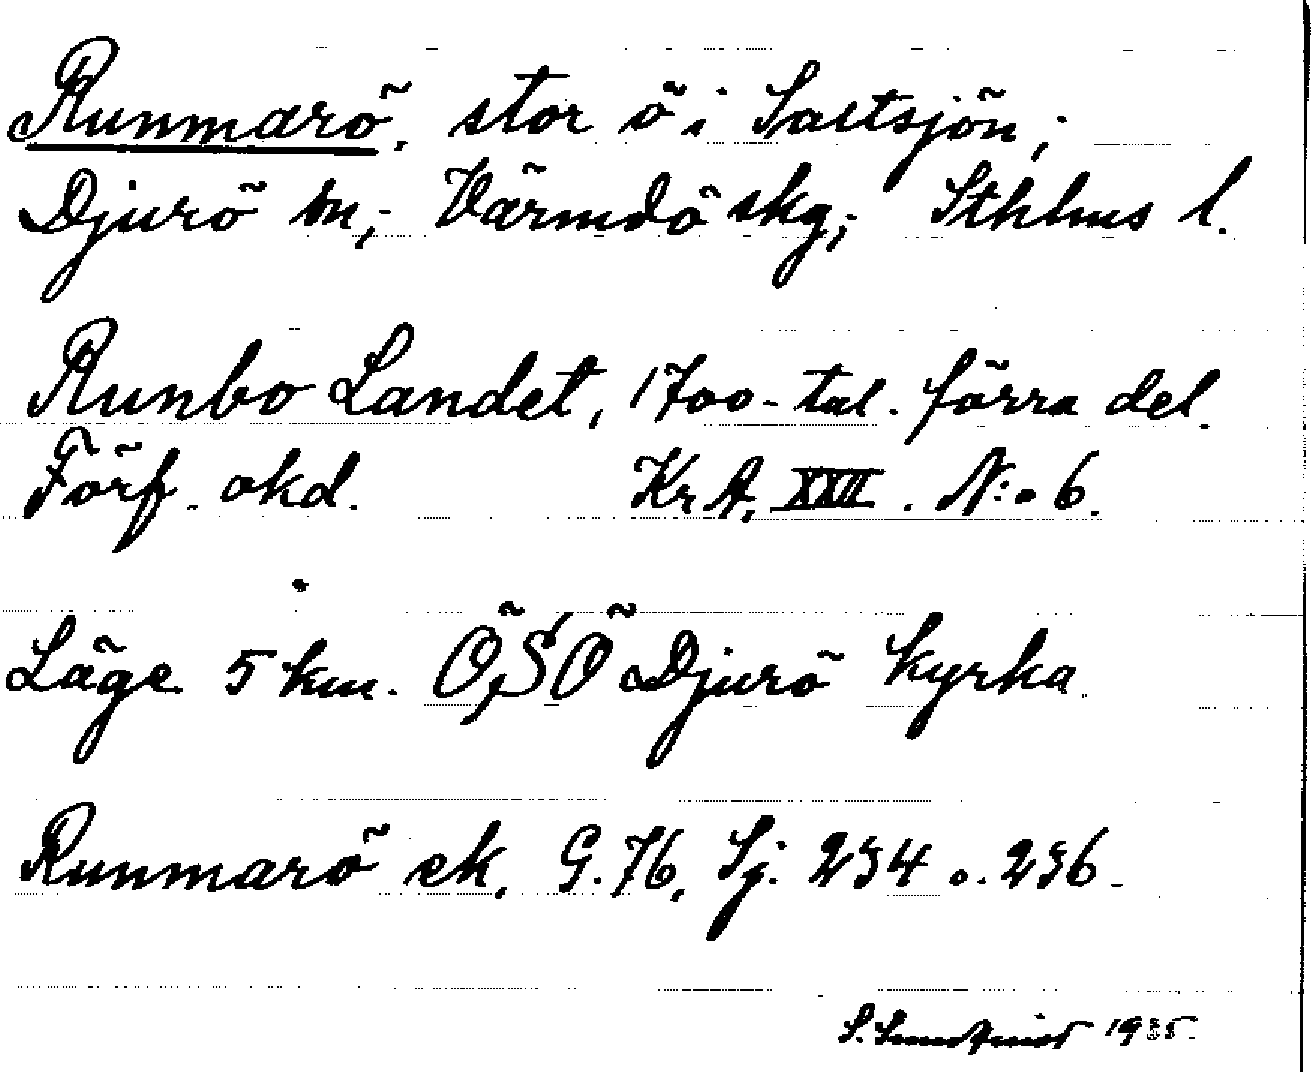 Runmarö, stor ö i Saltsjön;
Djurö sn; Värmdö skg; Sthlms l.
Runbo Landet, 1700-tal. förra del.
Förf. okd. Kr A. XXII. N:o 6.
Läge 5 km. ÖSÖ Djurö kyrka.
Runmarö ek. G. 76, Sj. 234 o. 236.
S. Sundqvist 1935.